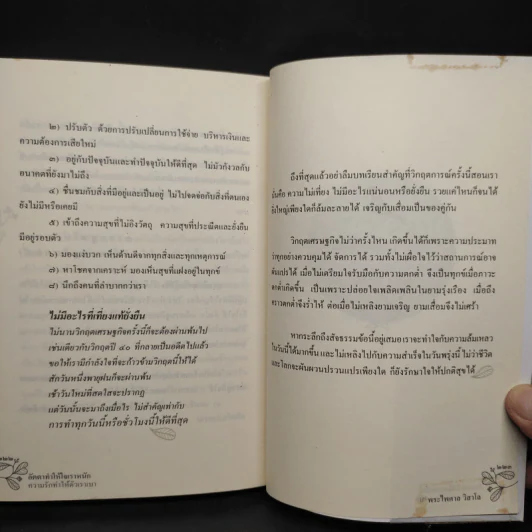 ๒) ปรับตัว ด้วยการปรับเปลี่ยนการใช้จ่าย บริหารเงินและ
ความต้องการเสียใหม่
๓) อยู่กับปัจจุบันและทำปัจจุบันให้ดีที่สุด ไม่มัวกังวลกับ
อนาคตที่ยังมาไม่ถึง
๔) ชื่นชมกับสิ่งที่มีอยู่และเป็นอยู่ ไม่ไปจดจ่อกับสิ่งที่ตนเอง
ยังไม่มีหรือเคยมี
๕) เข้าถึงความสุขที่ไม่อิงวัตถุ ความสุขที่ประณีตและยั่งยืน
มีอยู่รอบตัว
๖) มองแง่บวก เห็นด้านดีจากทุกสิ่งและทุกเหตุการณ์
๗) หาโชคจากเคราะห์ มองเห็นสุขที่แฝงอยู่ในทุกข์
๘) นึกถึงคนที่ลำบากกว่าเรา
ไม่มีอะไรที่เที่ยงแท้ยั่งยืน
ไม่นานวิกฤตเศรษฐกิจครั้งนี้ก็จะต้องผ่านพ้นไป
เช่นเดียวกับวิกฤตปี ๔๐ ที่กลายเป็นอดีตไปแล้ว
ขอให้เรามีกำลังใจที่จะก้าวข้ามวิกฤตนี้ให้ได้
สักวันหนึ่งพายุฝนก็จะผ่านพ้น
เช้าวันใหม่ที่สดใสจะปรากฏ
แต่วันนั้นจะมาถึงเมื่อไร ไม่สำคัญเท่ากับ
การทำทุกวันนี้หรือชั่วโมงนี้ให้ดีที่สุด
๒๒๒
ความรักทำให้
ถึงที่สุดแล้วอย่าลืมบทเรียนสำคัญที่วิกฤตการณ์ครั้งนี้สอนเรา
นั่นคือ ความไม่เที่ยง ไม่มีอะไรแน่นอนหรือยั่งยืน รวยแค่ไหนก็จนได้
ยิ่งใหญ่เพียงใดก็ล้มละลายได้ เจริญกับเสื่อมเป็นของคู่กัน
วิกฤตเศรษฐกิจไม่ว่าครั้งไหน เกิดขึ้นได้ก็เพราะความประมาท
ว่าทุกอย่างควบคุมได้ จัดการได้ รวมทั้งไม่เผื่อใจไว้ว่าสถานการณ์อาจ
ผันแปรได้ เมื่อไม่เตรียมใจรับมือกับความตกต่ำ จึงเป็นทุกข์เมื่อภาวะ
ตกต่ำเกิดขึ้น เป็นเพราะปล่อยใจเพลิดเพลินในยามรุ่งเรือง เมื่อถึง
คราวตกต่ำจึงร่ำไห้ ต่อเมื่อไม่เหลิงยามเจริญ ยามเสื่อมจึงไม่เศร้า
หากระลึกถึงสัจธรรมข้อนี้อยู่เสมอเราจะทำใจกับความล้มเหลว
ในวันนี้ได้มากขึ้น และไม่เหลิงไปกับความสำเร็จในวันพรุ่งนี้ ไม่ว่าชีวิต
และโลกจะผันผวนปรวนแปรเพียงใด ก็ยังรักษาใจให้ปกติสุขได้
๒๒๓
พระไพศาล วิสาโล